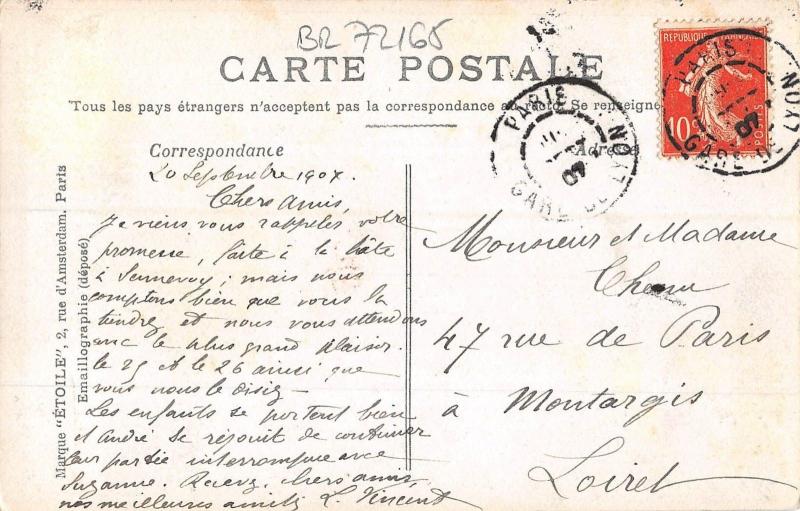 BR 72165
CARTE POSTALE
Tous les pays étrangers n'acceptent pas la correspondance au recto. Se renseigne
Correspondance
Adresse
20 Septembre 1907.
Chers amis,
Je viens vous rappeler votre
promesse, faite à la hâte
à Sennevoy; mais nous
comptons bien que vous la
tiendrez et nous vous attendons
avec le plus grand plaisir
le 25 et le 26 ainsi que
vous nous le disiez –
Les enfants se portent bien
et André se réjouit de continuer
leur partie interrompue avec
Suzanne. Recevez, chers amis,
nos meilleures amitiés L. Vincent
Monsieur et Madame
47 rue de Paris
à Montargis
Loiret
Marque "ÉTOILE", 2, rue d'Amsterdam. Paris
Emaillographie (déposé)
RÉPUBLIQUE FRANÇAISE
10c
POSTES
PARIS
GARE DE LYON
07
PARIS
GARE DE LYON
07